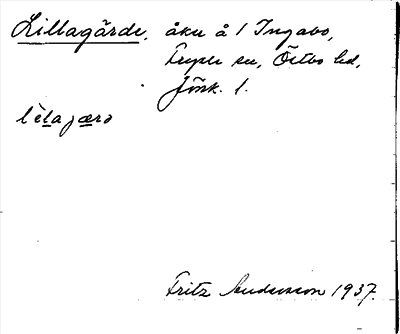 Lillagärde, åker å 1 Ingabo,
Fryele sn, Östbo hd,
Jönk. l.
lèlajærd
Fritz Andersson 1937.